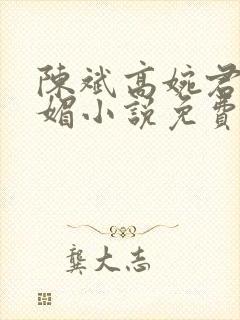 陳斌高婉君
媚小說免費
龔大志